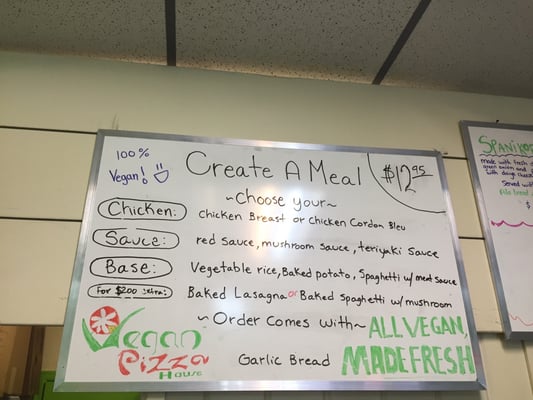 100%
Vegan!
Create A Meal
$12.95
~Choose your~
Chicken: Chicken Breast or Chicken Cordon Bleu
Sauce: red sauce, mushroom sauce, teriyaki sauce
Base: Vegetable rice, Baked potato, Spaghetti w/ meat sauce
For $2.00 extra: Baked Lasagna or Baked Spaghetti w/ mushroom
~Order Comes with~
ALL VEGAN,
Garlic Bread
MADE FRESH
Vegan
Pizza
House
made with fresh
green onion and
Served with
$